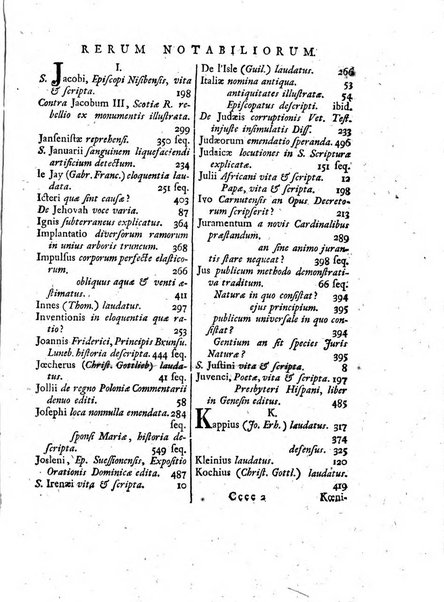 RERUM NOTABILIORUM.
I.
S. Jacobi, Episcopi Nisibensis, vita
& scripta. 198
Contra Jacobum III, Scotiæ R. re-
bellio ex monumentis illustrata.
299
Jansenistæ reprehensi. 350 seq.
S. Januarii sanguinem liquefaciendi
artificium detectum. 234
le Jay (Gabr. Franc.) eloquentia lau-
data. 251 seq.
Icteri quæ sint causæ? 403
De Jehovah voce varia. 87
Ignis subterraneus explicatus. 364
Implantatio diversorum ramorum
in unius arboris truncum. 368
Impulsus corporum perfecte elastico-
rum. 266
obliquus aquæ & venti æ-
stimatus. 411
Innes (Thom.) laudatus. 297
Inventionis in eloquentia quæ ra-
tio? 253
Joannis Friderici, Principis Brunsu.
Luneb. historia descripta. 444 seq.
Jœcherus (Christ. Gottlieb) lauda-
tus. 41 seq.
Jollii de regno Poloniæ Commentarii
denuo editi. 58
Josephi loca nonnulla emendata. 284
seq.
sponsi Mariæ, historia de-
scripta. 549 seq.
Josleni, Ep. Suessionensis, Expositio
Orationis Dominicæ edita. 487
S. Irenæi vita & scripta. 10
De l'Isle (Guil.) laudatus. 266
Italiæ nomina antiqua. 53
antiquitates illustratæ. 54
Episcopatus descripti. ibid.
De Judæis corruptionis Vet. Test.
injuste insimulatis Diss. 233
Judæorum emendatio speranda. 496
Judaicæ locutiones in S. Scriptura
explicatæ. 151 seq.
Julii Africani vita & scripta. 12
Papæ, vita & scripta. 198
Ivo Carnutensis an Opus Decreto-
rum scripserit? 213
Juramentum a novis Cardinalibus
præstandum. 289
an sine animo juran-
tis stare nequeat? 398 seq.
Jus publicum methodo demonstrati-
va traditum. 66 seq.
Naturæ in quo consistat? 394
ejus principium. 397
publicum universale in quo con-
sistat? 394
Gentium an sit species Juris
Naturæ? 395
S. Justini vita & scripta. 8
Juvenci, Poetæ, vita & scripta. 197
Presbyteri Hispani, liber
in Genesin editus. 485
K.
Kappius (Jo. Erh.) laudatus. 317
374
defensus. 325
Kleinius laudatus. 120
Kochius (Christ. Gottl.) laudatus.
419
Cccc 2 Kœni-